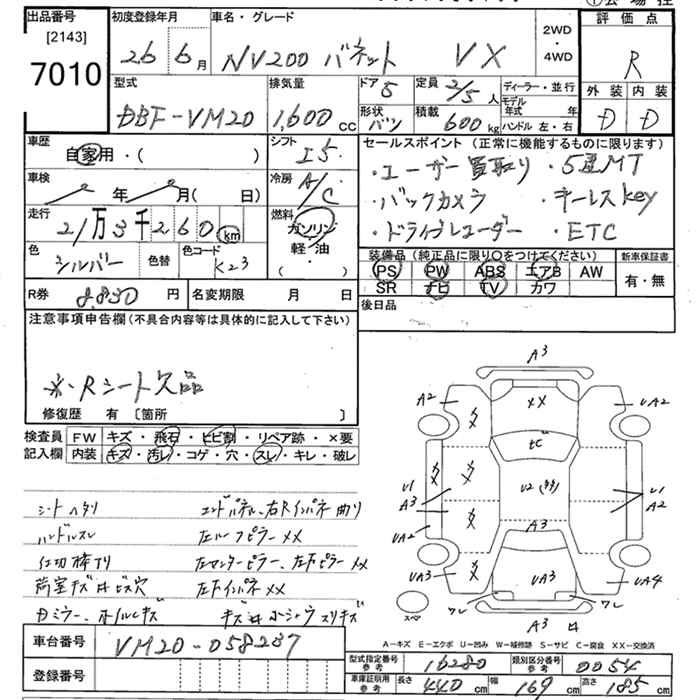 出品番号 [2143] 7010
初度登録年月 26 6月
車名・グレード NV200 バネット VX
2WD・4WD
評価点 R
外装 D 内装 D
型式 DBF-VM20
排気量 1,600cc
ドア 5
形状 バン
定員 2/5人
積載 600kg
ディーラー・並行
モデル年式 年
ハンドル 左・右
車歴 自家用・( )
シフト I5
車検 年 月( 日)
冷房 A/C
走行 21万3千260km
燃料 ガソリン
軽・油
( )
色 シルバー
色替
色コード K23
R券 8,830円
名変期限 月 日
セールスポイント (正常に機能するものに限ります)
・ユーザー買取り ・5速MT
・バックカメラ ・キーレスkey
・ドライブレコーダー ・ETC
装備品 (純正品に限り○をつけてください)
PS PW ABS エアB AW
SR ナビ TV カワ
新車保証書
有・無
後日品
注意事項申告欄 (不具合内容等は具体的に記入して下さい)
※・Rシート欠品
修復歴 有 〔箇所 〕
検査員記入欄
FW キズ・飛石・ヒビ割・リペア跡・×要
内装 キズ・汚レ・コゲ・穴・スレ・キレ・破レ
シートヘタリ エンドパネル、右Rインパネ曲り
ハンドルスレ 左ルーフピラーXX
仕切棒サリ 左センターピラー、左下ピラーXX
荷室キズサビス穴 左下インパネXX
Dミラー、ホイールキズ
車台番号 VM20-058237
登録番号
A3
A2 XX UA2
tC
U1 A3 U2 U1 A2
UA2 A3
UA3 UA3 UA4
ワレ ワレ
スペア
A3
A-キズ E-エクボ U-凹み W-補修跡 S-サビ C-腐食 XX-交換済
型式指定番号 参考 16280
類別区分番号 参考 0054
車庫証明用 参考 長さ 440cm 幅 169cm 高さ 185cm